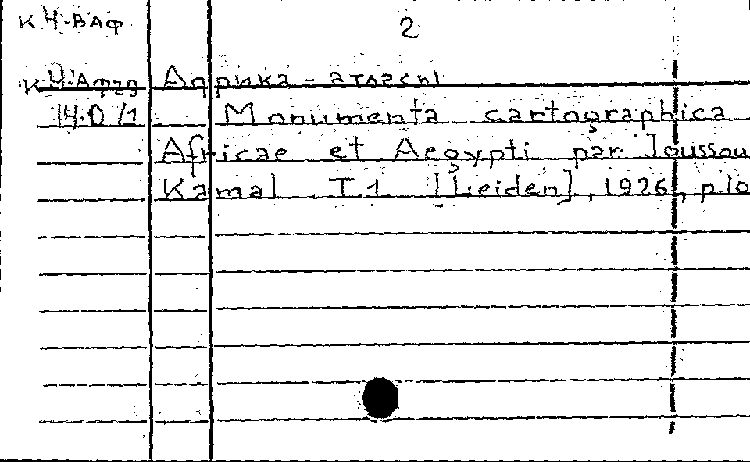 К Ч-ВАФ 2
К Ч-Афзд Африка - атласы
14.D/1 Monumenta cartographica
Africae et Aegypti par Joussou
Kamal T.1 [Leiden], 1926, plo